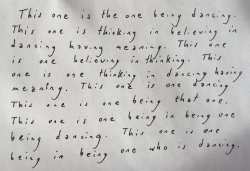 This one is the one being dancing.
This one is thinking in believing in
dancing having meaning. This one
is one believing in thinking. This
one is one thinking in dancing having
meaning. This one is one dancing.
This one is one being that one.
This one is one being in being one
being dancing. This one is one
being in being one who is dancing.